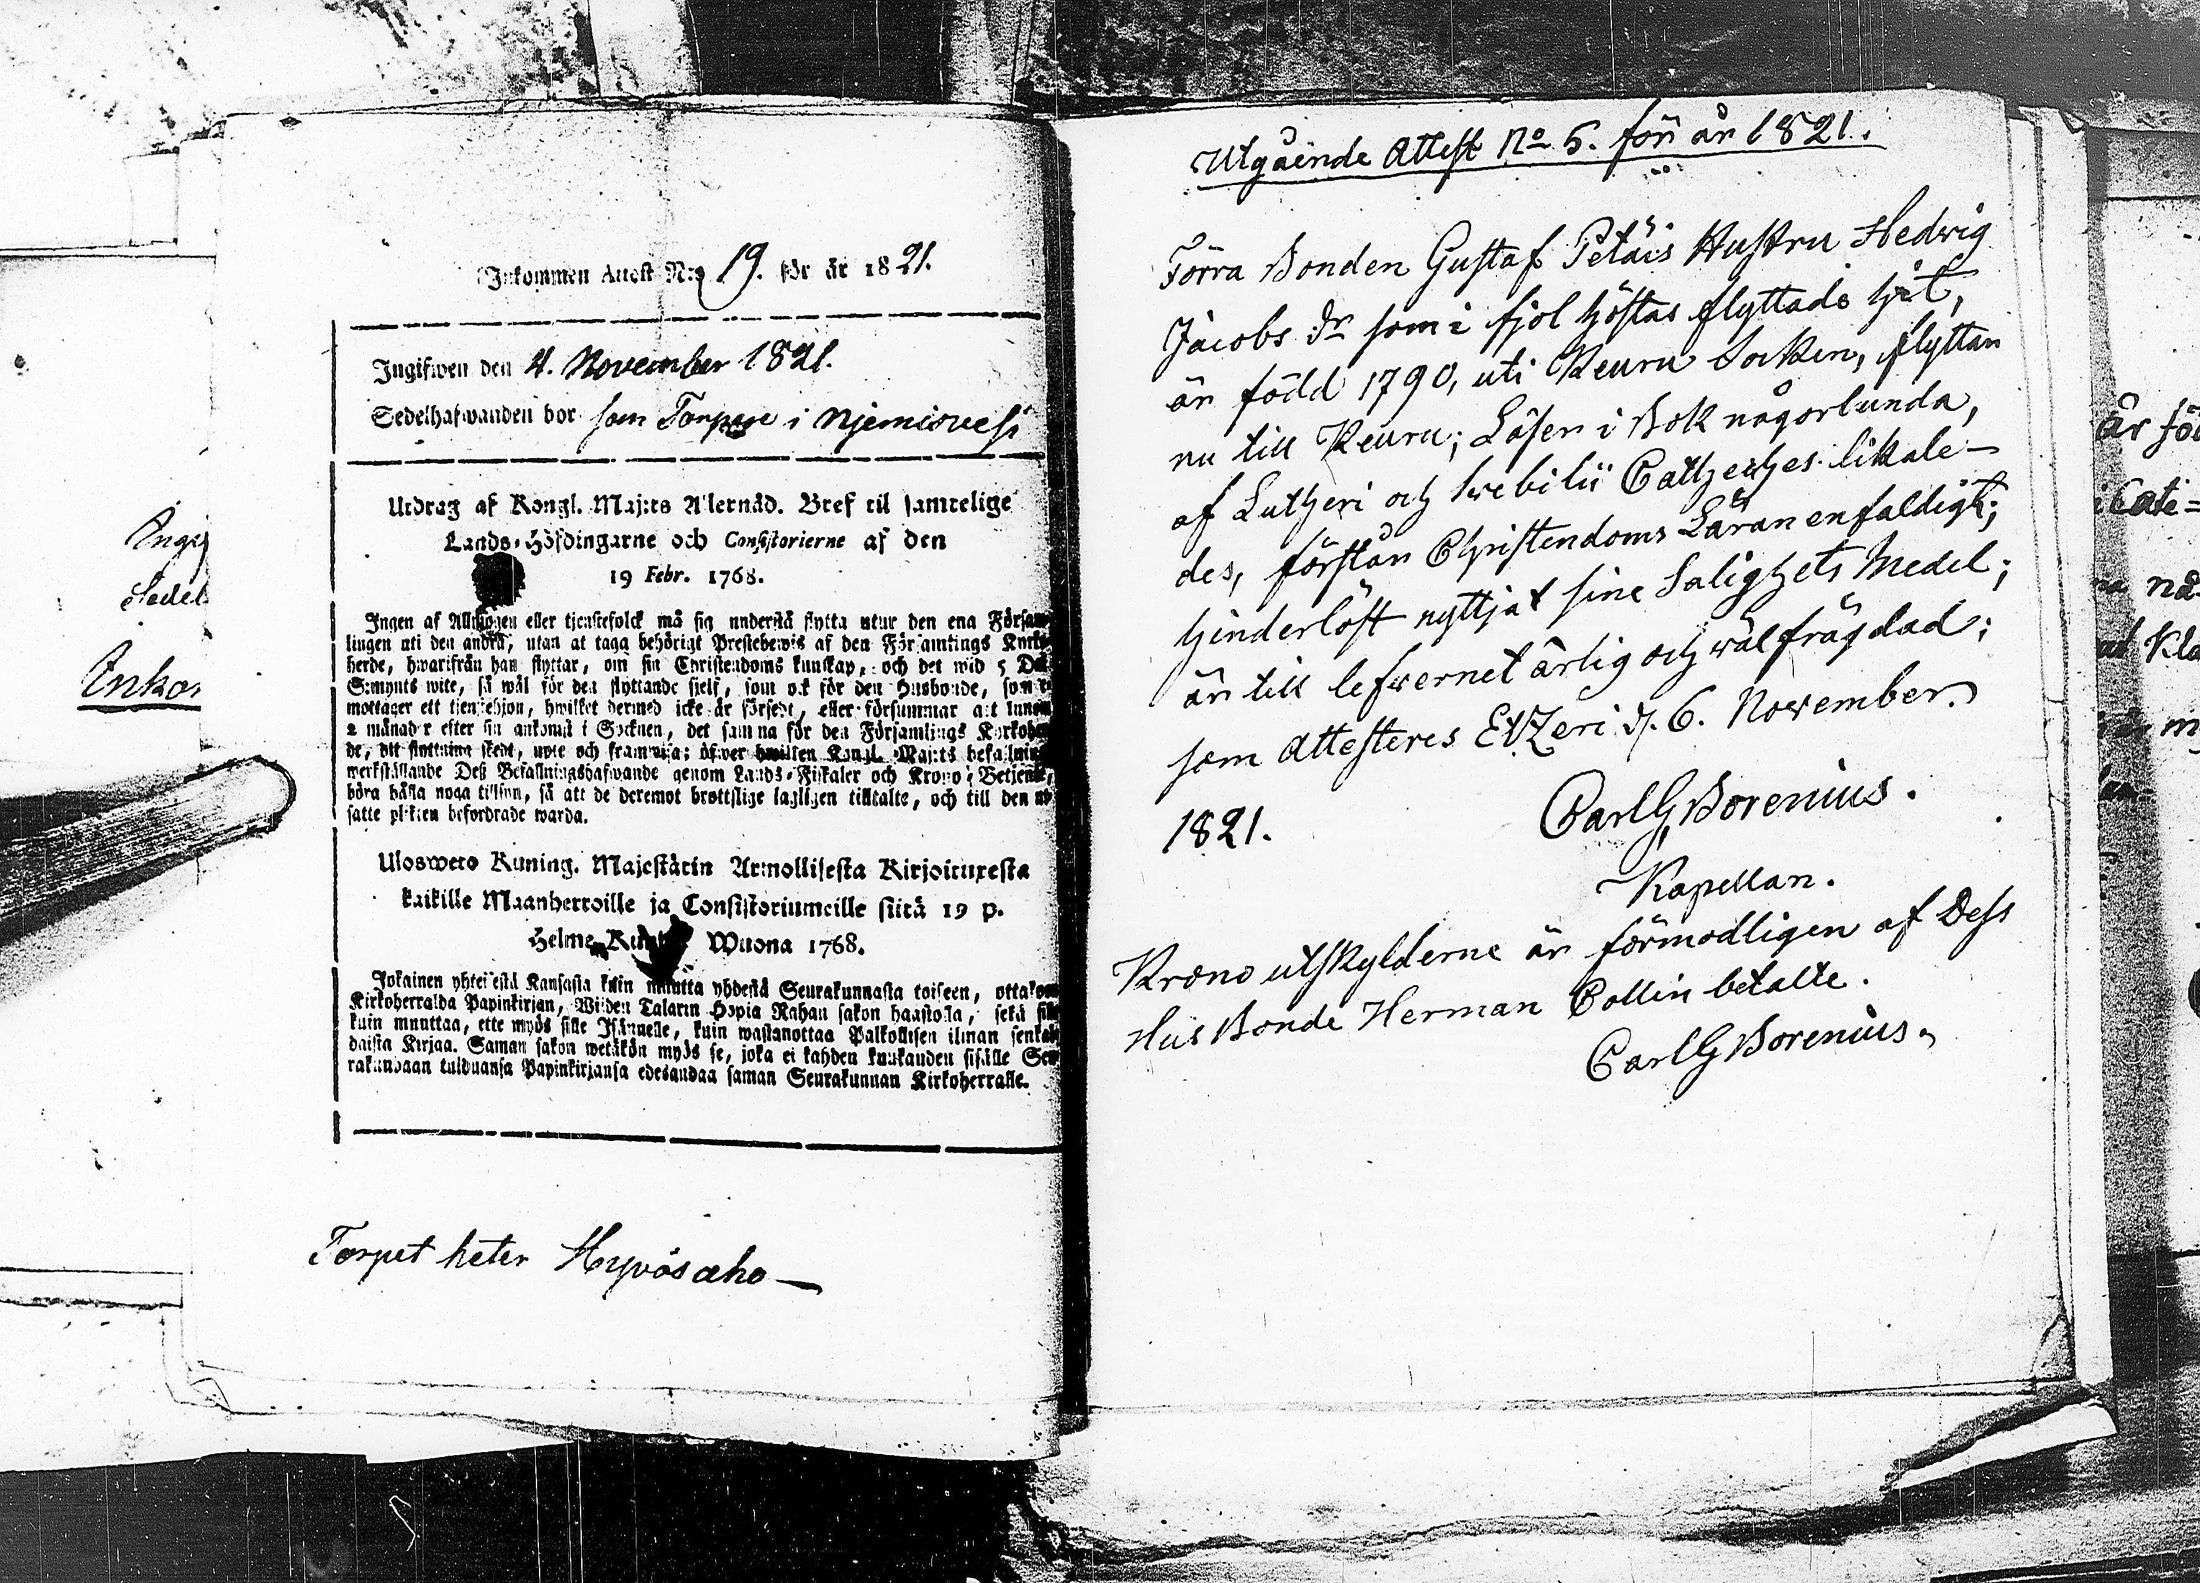 Ingif
Sedel
Inkom
Inkommen Attest N:o 19. för år 1821.
Ingifwen den 4. November 1821.
Sedelhafwanden bor som Torpare i Njemisvesi
Utdrag af Kongl. Maj:ts Allernåd. Bref til samtelige
Lands-Höfdingarne och Consistorierne af den
19 Febr. 1768.
Ingen af Allmogen eller tjenstefolck må sig understå flytta utur den ena Försam
lingen uti den andra, utan at taga behörigt Prestebewis af den Församlings Kyrko
herde, hwarifrån han flyttar, om sin Christendoms kunskap, och det wid 5 Dal.
S:mynts wite, så wäl för den flyttande sjelf, som ock för den Husbonde, som e
mottager ett tjenstehjon, hwilket dermed icke är försedt, eller försummar att innom
2 månader efter sin ankomst i Socknen, det samma för den Församlings Kyrkoher
de, dit flyttning skedt, upte och framwisa; öfwer hwilken Kongl. Maj:ts befalning
werkställande Deß Befallningshafwande genom Lands-Fiskaler och Krono-Betjente,
böra hålla noga tillsyn, så att de deremot brottslige lagligen tilltalte, och till den ut
satte plikten befordrade warda.
Ulosweto Kuning. Majestätin Armollisesta Kirjoituxesta
kaikille Maanherroille ja Consistoriumeille siitä 19 p.
Helme Kuusa Wuona 1768.
Jokainen yhteisestä Kansasta kuin muutta yhdestä Seurakunnasta toiseen, ottakon
Kirkoherralda Papinkirjan, Wijden Talarin Hopia Rahan sakon haastolla, sekä sille
kuin muuttaa, ette myös sille Isännelle, kuin wastanottaa Palkollisen ilman senkal
daista Kirjaa. Saman sakon wetäkön myös se, joka ei kahden kuukauden sisälle Seu
rakundaan tulduansa Papinkirjansa edesandaa saman Seurakunnan Kirkoherralle.
Torpet heter Hyvösaho
Utgående Attest No 6. för år 1821.
Förra Bonden Gustaf Petäis Hustru Hedvig
Jacobs dr som i fjol höstas flyttade hit,
är född 1790, uti Keuru Socken, flyttar
nu till Keuru; Läser i Bok någorlunda,
af Lutheri och Svebilii Catheches likale-
des, förstår Christendoms Läran enfaldigt;
hinderlöst nyttjat sine Salighets Medel;
är till lefwernet ärlig och wälfrägdad;
som attesteres Etzeri d. 6. November
1821.
Carl G Borenius.
Kapellan.
Krono utskylderne är förmodligen af Dess
Hus Bonde Herman Collin betalte.
Carl G Borenius.
är fö
i Cate=
nå
at Kla